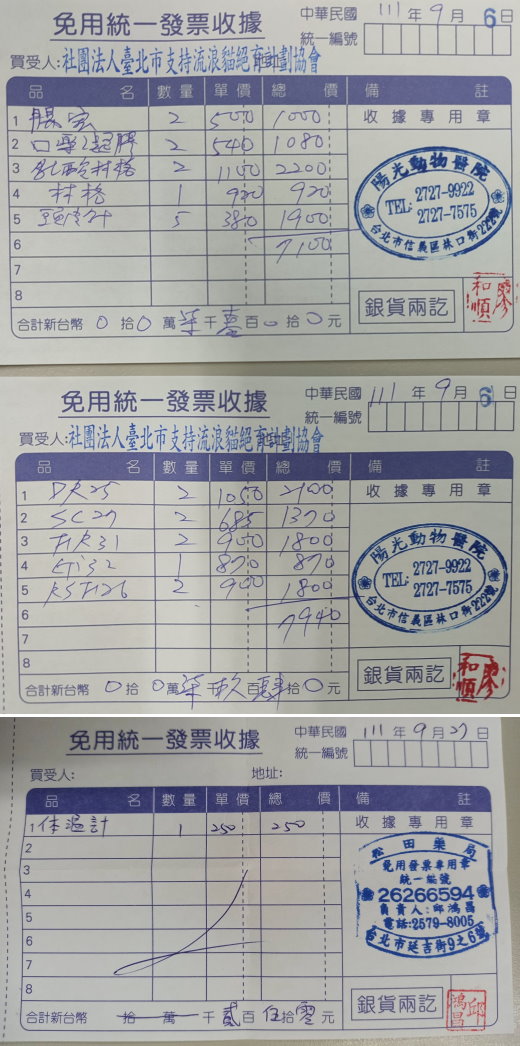 免用統一發票收據
中華民國 111 年 9 月 6 日
統一編號
買受人:社團法人臺北市支持流浪貓絕育計劃協會
品 名 數量 單價 總價 備註
1 腸安 2 500 1000 收據專用章
2 口專凝膠 2 540 1080
3 2 1100 2200
4 1 920 920
5 5 380 1900
6 7100
7
8
陽光動物醫院
TEL: 2727-9922
2727-7575
台北市信義區林口街222號
銀貨兩訖
廖和順
合計新台幣 0 拾 0 萬 柒 千 壹 百 0 拾 0 元
免用統一發票收據
中華民國 111 年 9 月 6 日
統一編號
買受人:社團法人臺北市支持流浪貓絕育計劃協會
品 名 數量 單價 總價 備註
1 DR25 2 1050 2100 收據專用章
2 SC27 2 685 1370
3 2 900 1800
4 1 870 870
5 2 900 1800
6 7940
7
8
陽光動物醫院
TEL: 2727-9922
2727-7575
台北市信義區林口街222號
銀貨兩訖
廖和順
合計新台幣 0 拾 0 萬 柒 千 玖 百 肆 拾 0 元
免用統一發票收據
中華民國 111 年 9 月 27 日
統一編號
買受人: 地址:
品 名 數量 單價 總價 備註
1 体溫計 1 250 250 收據專用章
2
3
4
5
6
7
8
松田藥局
免用發票專用章
統一編號
26266594
負責人:邱鴻昌
電話:2579-8005
台北市延吉街9之6號
銀貨兩訖
邱鴻昌
合計新台幣 拾 萬 千 貳 百 伍 拾 零 元